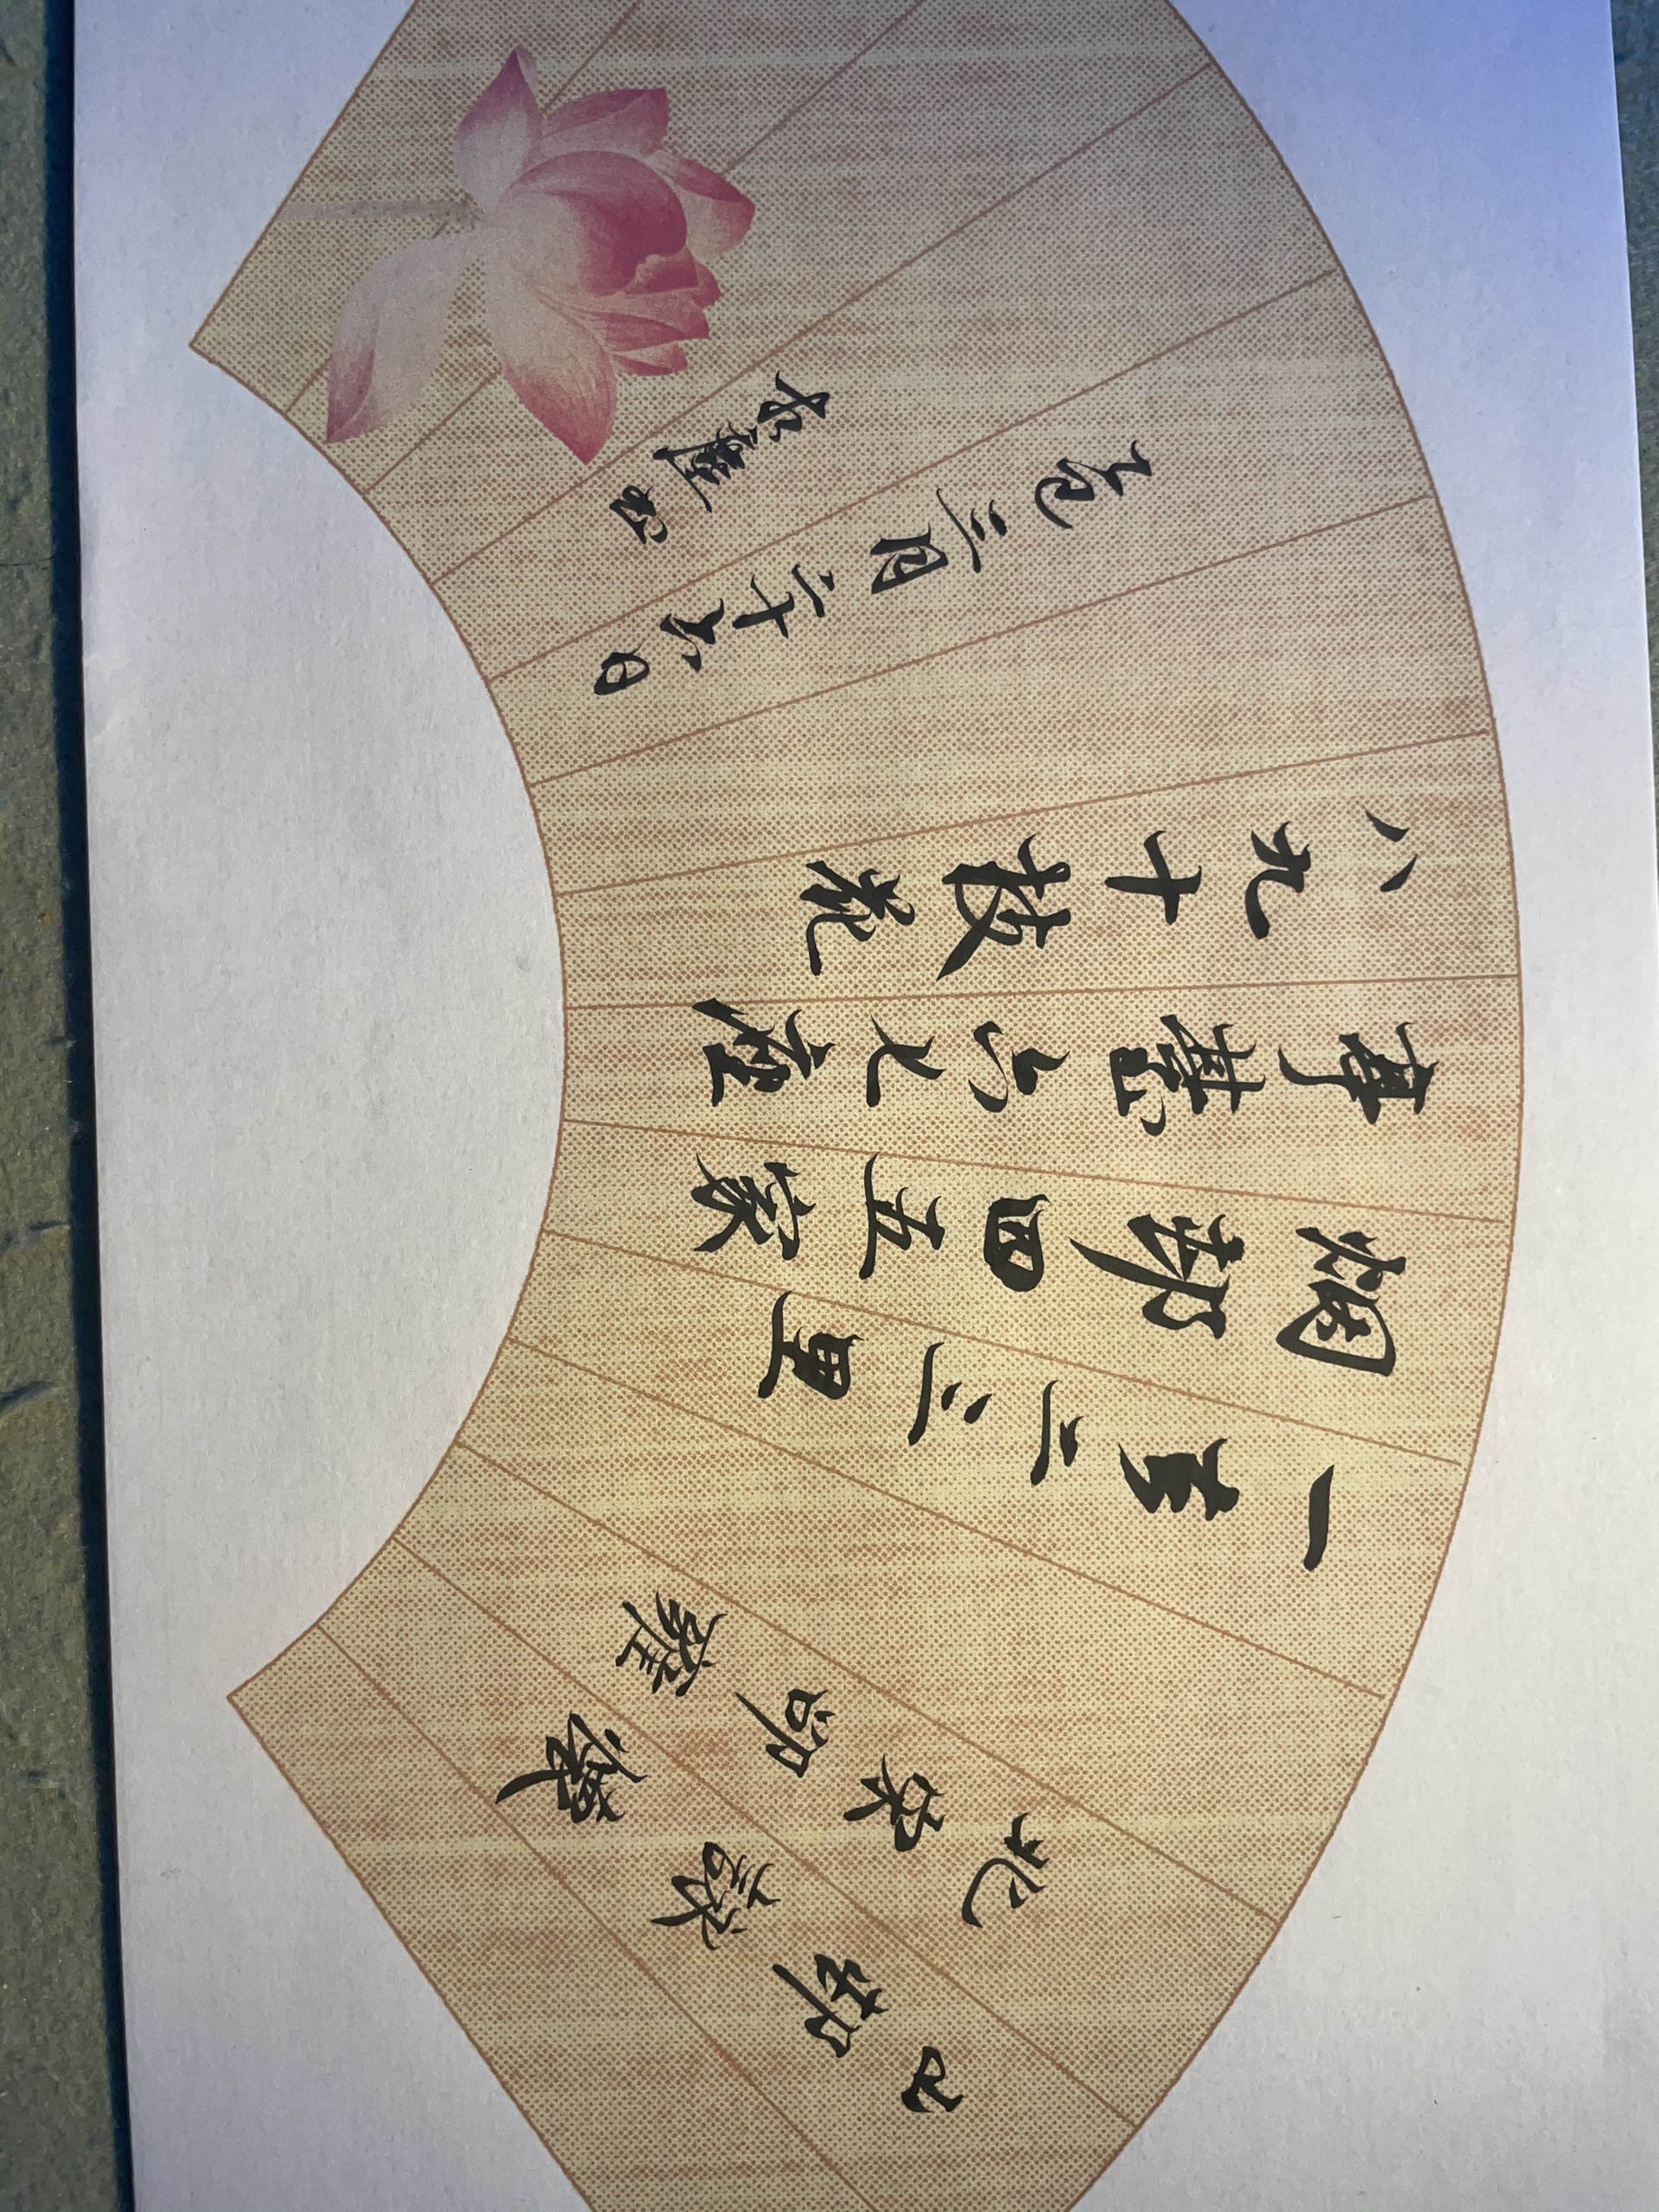 山邨詠懷
北宋邵雍
一去二三里
烟邨四五家
亭臺六七座
八九十枝花
乙巳三月二十六日
書